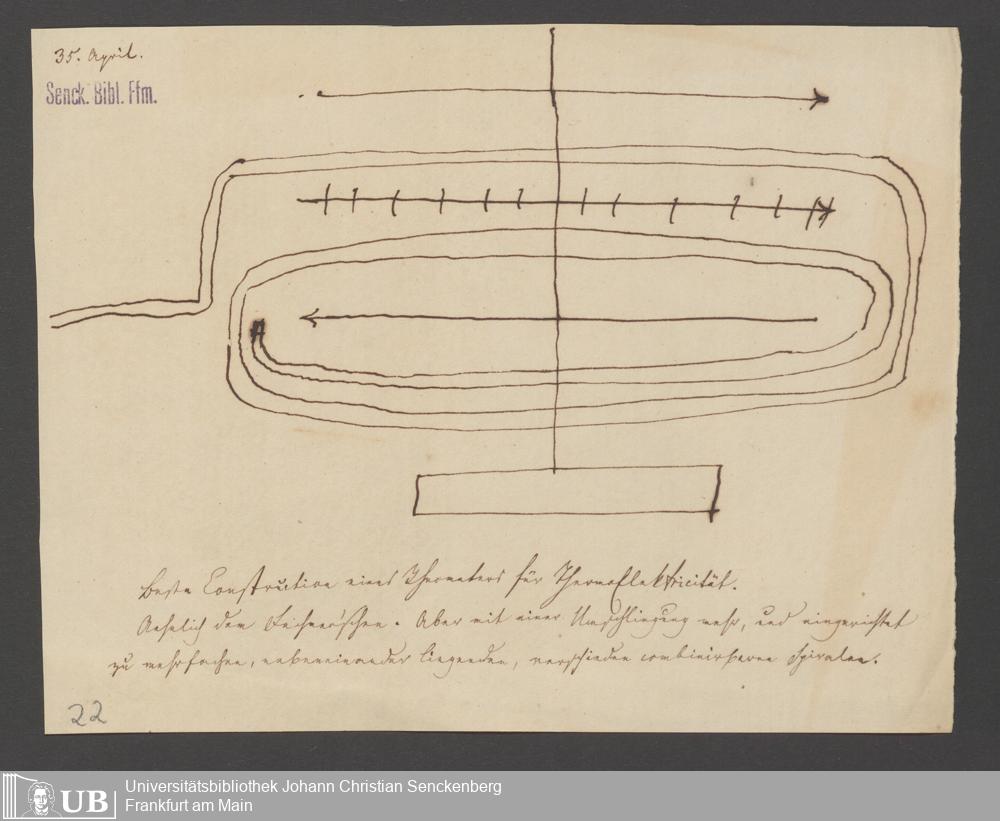 35. April.
Senck. Bibl. Ffm.
Beste Construction eines Rheometers für Thermoelektricität.
Aehnlich dem Fechner'schen. Aber mit einer Umschlingung mehr, und eingerichtet
zu mehrfachen, nebeneinander liegenden, verschieden combinirbaren Spiralen.
22
UB
Universitätsbibliothek Johann Christian Senckenberg
Frankfurt am Main